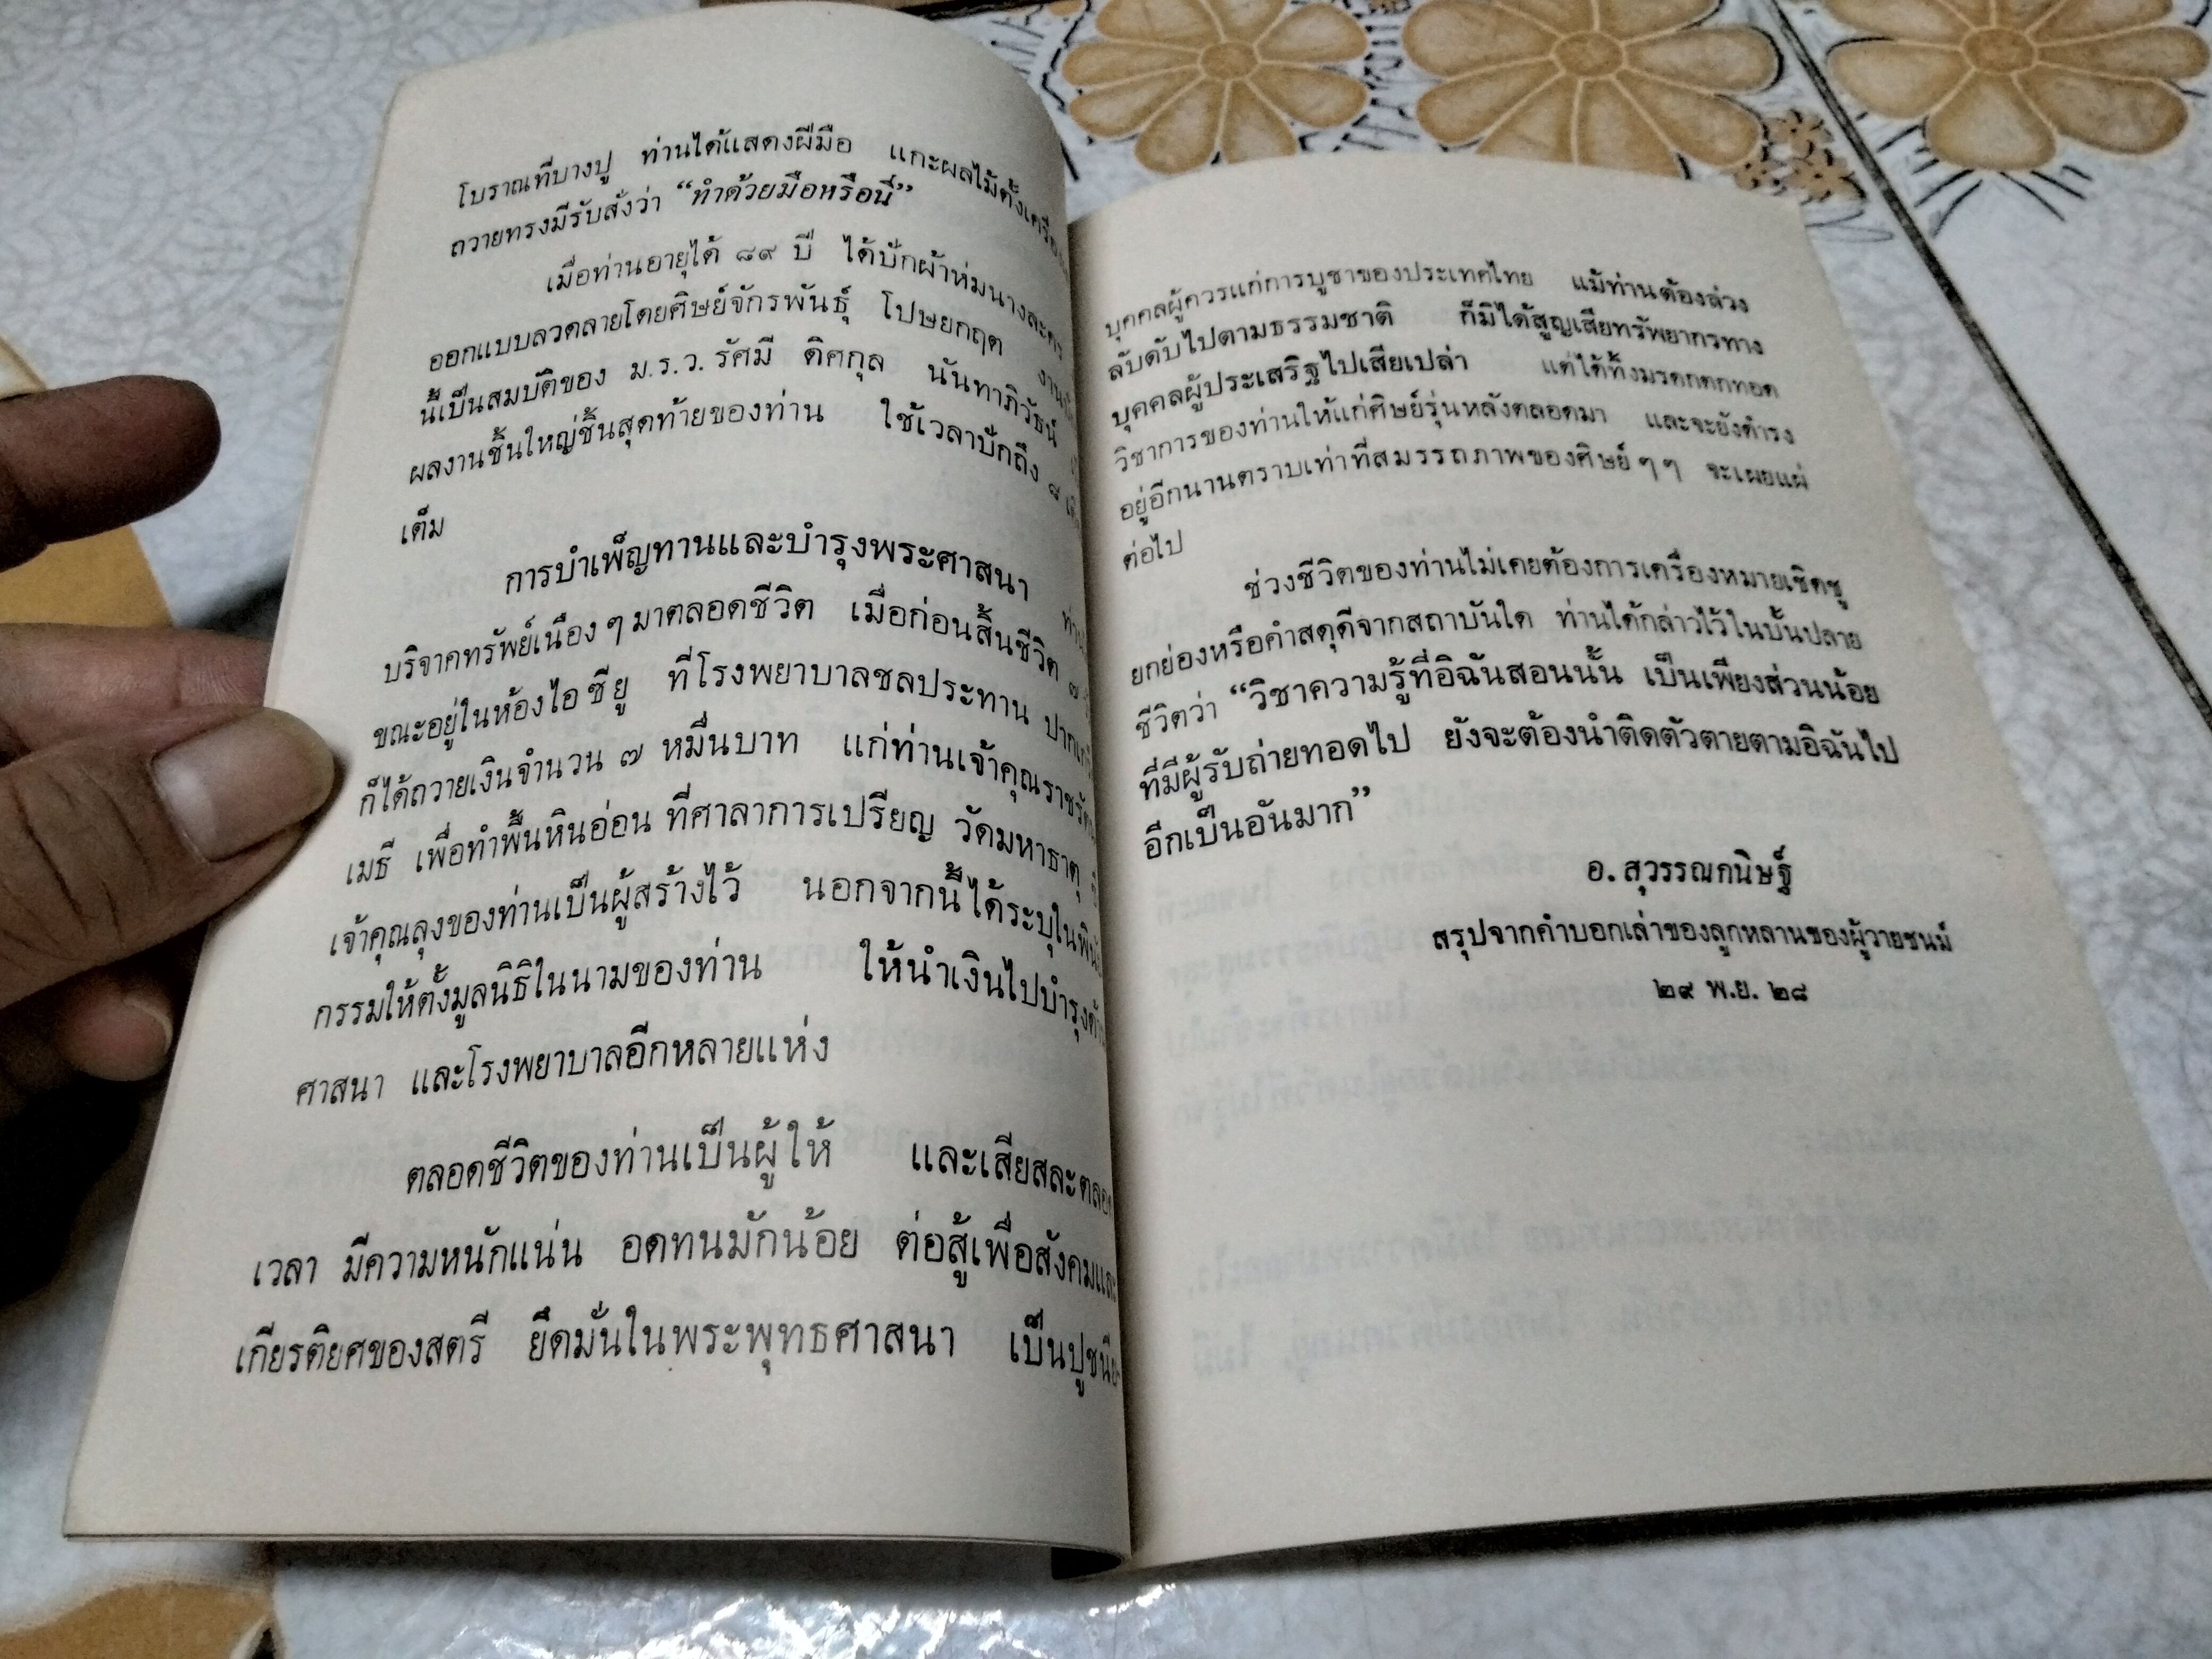 โบราณที่บางปู ท่านได้แสดงฝีมือ แกะผลไม้ตั้งเครื่อง
ถวายทรงมีรับสั่งว่า “ทำด้วยมือหรือนี่”
เมื่อท่านอายุได้ ๘๙ ปี ได้ปักผ้าห่มนางละคร
ออกแบบลวดลายโดยศิษย์จักรพันธุ์ โปษยกฤต
นี้เป็นสมบัติของ ม.ร.ว. รัศมี ดิศกุล นันทาภิวัธน์
ผลงานชิ้นใหญ่ชิ้นสุดท้ายของท่าน ใช้เวลาปักถึง ๘
เต็ม
การบำเพ็ญทานและบำรุงพระศาสนา
บริจาคทรัพย์เนือง ๆ มาตลอดชีวิต เมื่อก่อนสิ้นชีวิต ๗
ขณะอยู่ในห้องไอ ซี ยู ที่โรงพยาบาลชลประทาน ปากเกร็ด
ก็ได้ถวายเงินจำนวน ๗ หมื่นบาท แก่ท่านเจ้าคุณราชรัตน
เมธี เพื่อทำพื้นหินอ่อน ที่ศาลาการเปรียญ วัดมหาธาตุ
เจ้าคุณลุงของท่านเป็นผู้สร้างไว้ นอกจากนี้ได้ระบุในพินัย
กรรมให้ตั้งมูลนิธิในนามของท่าน ให้นำเงินไปบำรุง
ศาสนา และโรงพยาบาลอีกหลายแห่ง
ตลอดชีวิตของท่านเป็นผู้ให้ และเสียสละตลอด
เวลา มีความหนักแน่น อดทนมักน้อย ต่อสู้เพื่อสังคมและ
เกียรติยศของสตรี ยึดมั่นในพระพุทธศาสนา เป็นปูชนีย-
บุคคลผู้ควรแก่การบูชาของประเทศไทย แม้ท่านต้องล่วง
ลับดับไปตามธรรมชาติ ก็มิได้สูญเสียทรัพยากรทาง
บุคคลผู้ประเสริฐไปเสียเปล่า แต่ได้ทิ้งมรดกตกทอด
วิชาการของท่านให้แก่ศิษย์รุ่นหลังตลอดมา และจะยังดำรง
อยู่อีกนานตราบเท่าที่สมรรถภาพของศิษย์ ๆ ๆ จะเผยแผ่
ต่อไป
ช่วงชีวิตของท่านไม่เคยต้องการเครื่องหมายเชิดชู
ยกย่องหรือคำสดุดีจากสถาบันใด ท่านได้กล่าวไว้ในบั้นปลาย
ชีวิตว่า “วิชาความรู้ที่อิฉันสอนนั้น เป็นเพียงส่วนน้อย
ที่มีผู้รับถ่ายทอดไป ยังจะต้องนำติดตัวตายตามอิฉันไป
อีกเป็นอันมาก”
อ. สุวรรณกนิษฐ์
สรุปจากคำบอกเล่าของลูกหลานของผู้วายชนม์
๒๙ พ.ย. ๒๘